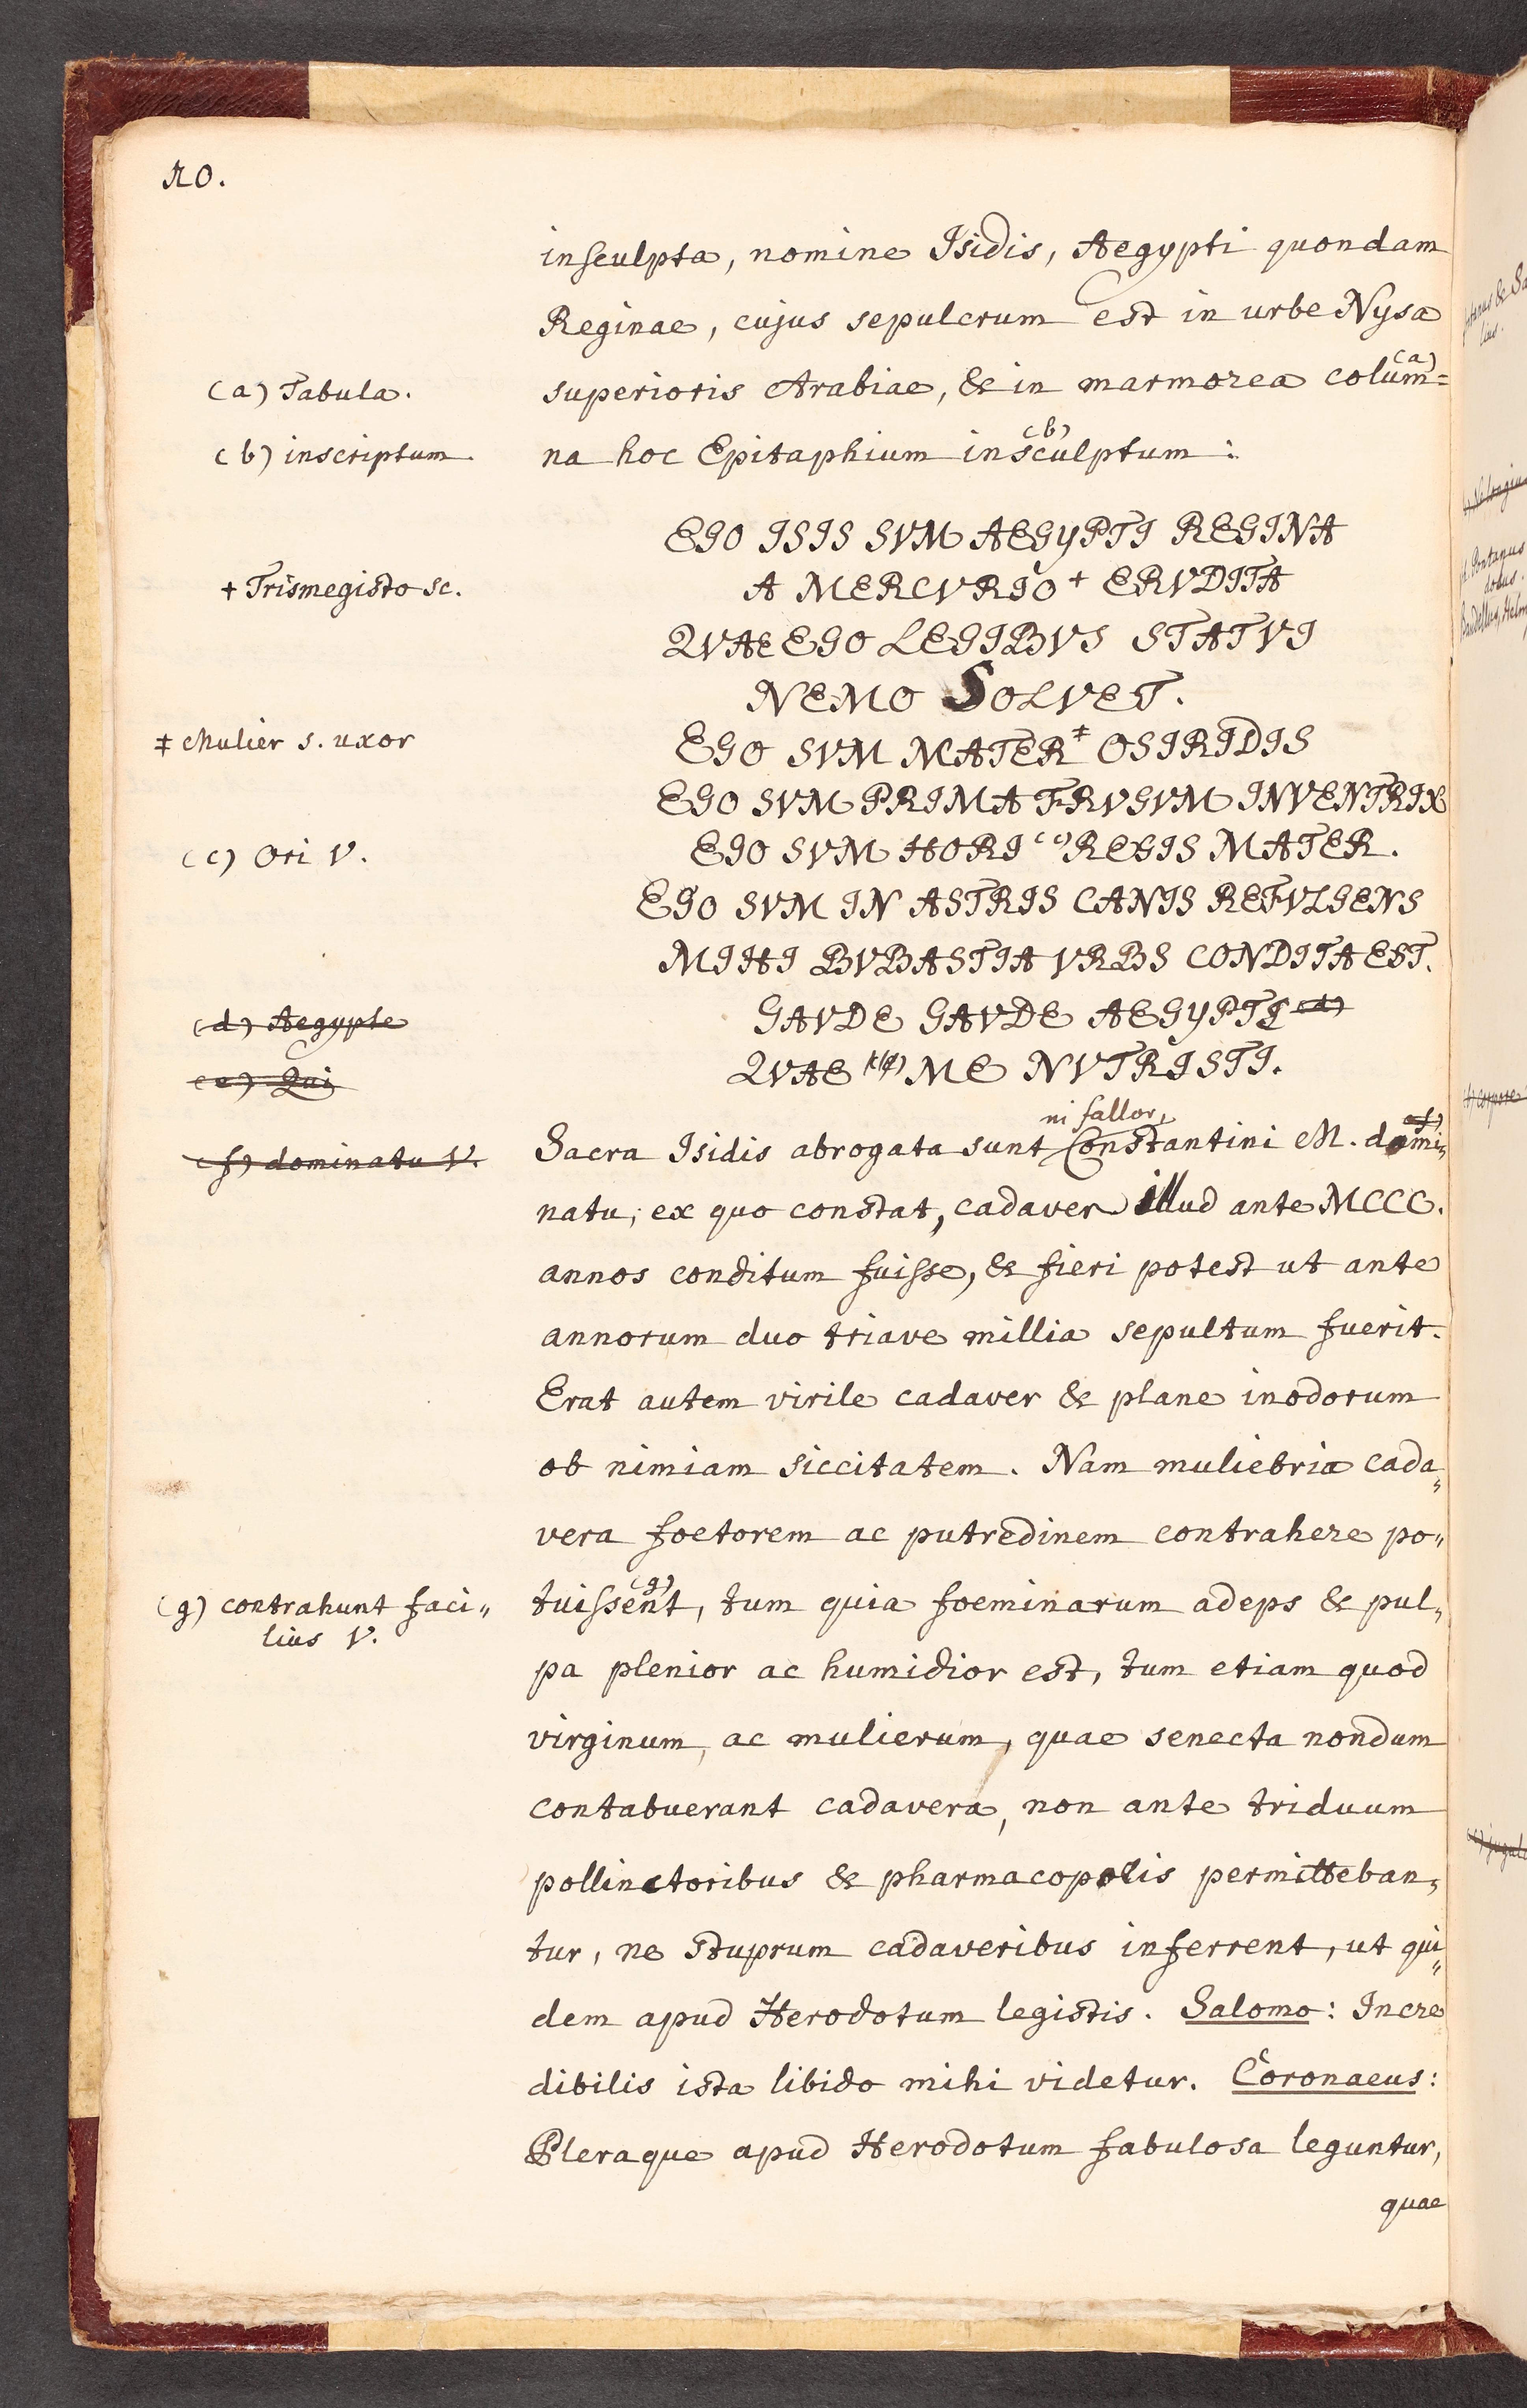 10.
insculpta, nomine Isidis, Aegypti quondam
Reginae, cujus sepulcrum est in urbe Nysa
(a) Tabula.
superioris Arabiae, & in marmorea colum=(a)
(b) inscriptum.
na hoc Epitaphium insculptum(b):
EGO ISIS SVM AEGYPTI REGINA
+ Trismegisto sc.
A MERCVRIO+ ERVDITA
QVAE EGO LEGIBVS STATVI
NEMO SOLVET.
‡ Mulier s. uxor
EGO SVM MATER‡ OSIRIDIS
EGO SVM PRIMA FRVGVM INVENTRIX
(c) Ori V.
EGO SVM HORI (c) REGIS MATER.
EGO SVM IN ASTRIS CANIS REFVLGENS
MIHI BVBASTIA VRBS CONDITA EST.
(d) Aegypte
GAVDE GAVDE AEGYPTE (d)
(e) Qui
QVAE (e) ME NVTRISTI.
ni fallor,
(f) dominatu V.
Sacra Isidis abrogata sunt Constantini M. domi„(f)
natu; ex quo constat, cadaver illud ante MCCC.
annos conditum fuisse, & fieri potest ut ante
annorum duo triave millia sepultum fuerit.
Erat autem virile cadaver & plane inodorum
ob nimiam siccitatem. Nam muliebria cada„
vera foetorem ac putredinem contrahere po„
(g) contrahunt faci„
lius V.
tuissent(g), tum quia foeminarum adeps & pul„
pa plenior ac humidior est, tum etiam quod
virginum, ac mulierum, quae senecta nondum
contabuerant cadavera, non ante triduum
pollinctoribus & pharmacopolis permitteban„
tur, ne stuprum cadaveribus inferrent, ut qui„
dem apud Herodotum legistis. Salomo: Incre
dibilis ista libido mihi videtur. Coronaeus:
Pleraque apud Herodotum fabulosa leguntur,
quae